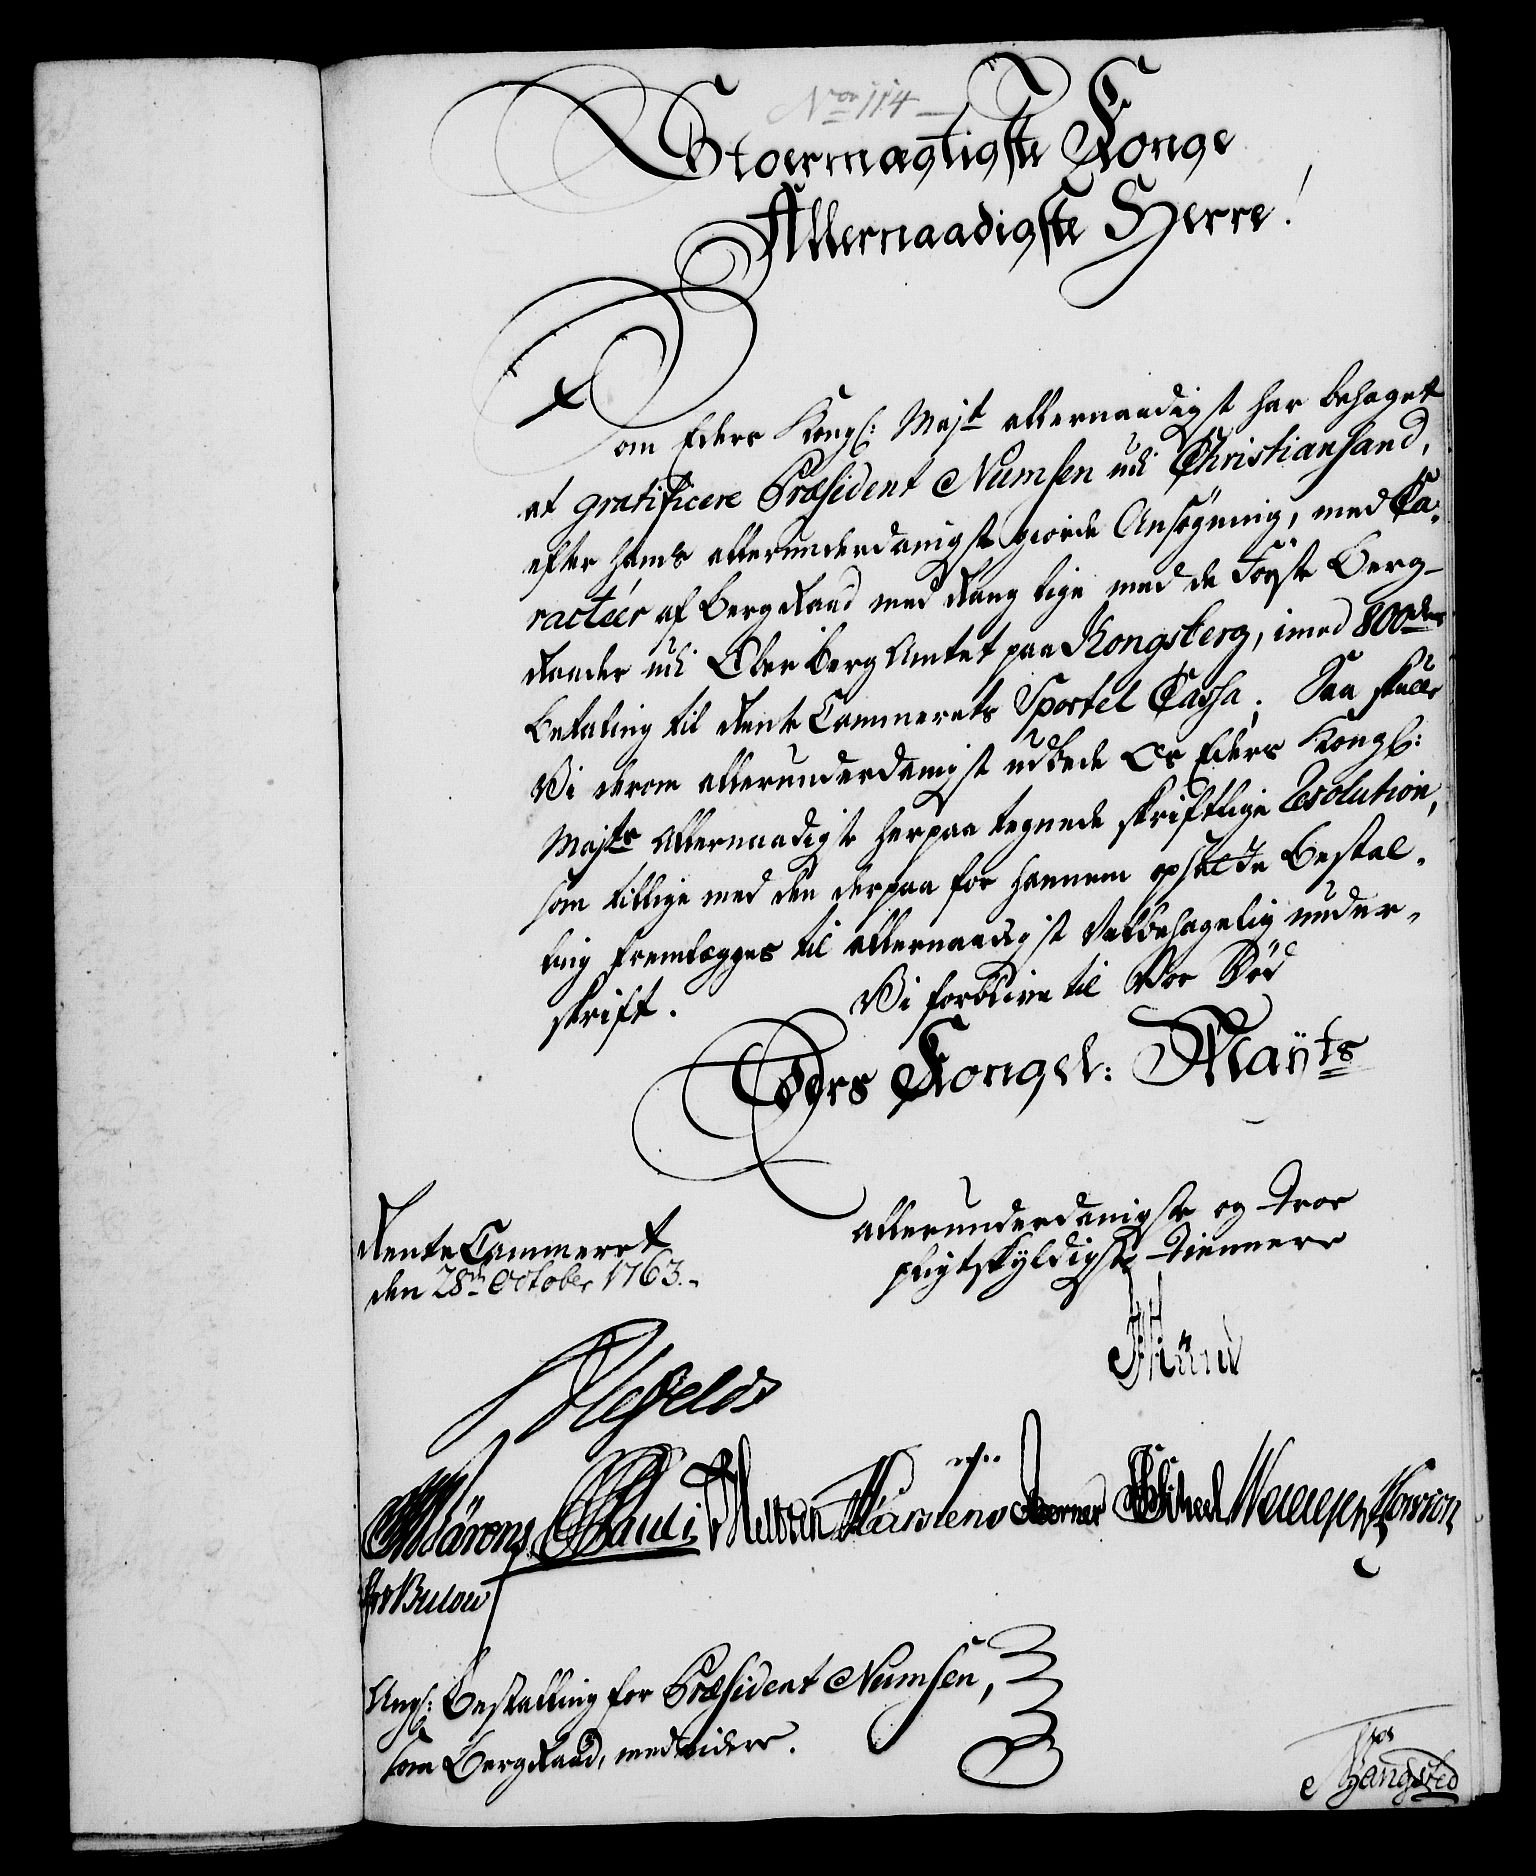 Nro 114
Stormægtigste Konge
Allernaadigste Herre!
Som Eders Kongl: Majt allernaadigst har behaget
at gratificere Præsident Numsen udi Christiansand,
efter hans allerunderdanigst giorde Ansøgning, med Ca-
racteér af BergRaad med Rang lige med de Søgste Berg-
Raader udi OberBergAmtet paa Kongsberg, imod 800 rdrs
Betaling til RenteCammerets Sportel Cassa; Saa skulle
Vi derom allerunderdanigst udbede Os Eders Kongl:
Majts Allernaadigste herpaa tegnede skriftlige Resolution,
som tillige med den derpaa for hannem opsatte Bestal-
ling fremlægges til allernaadigst Velbehagelig under-
skrift. Vi forblive til Vor Død
Eders Kongel: Mayts
allerunderdanigste og Troe
pligtskyldigste Tiennere
RenteCammeret
den 28de October 1763.
Ahlefeldt
Pauli Karstens
v Bulow
Angl: Bestalling for Præsident Numsen,
som BergRaad, med videre.